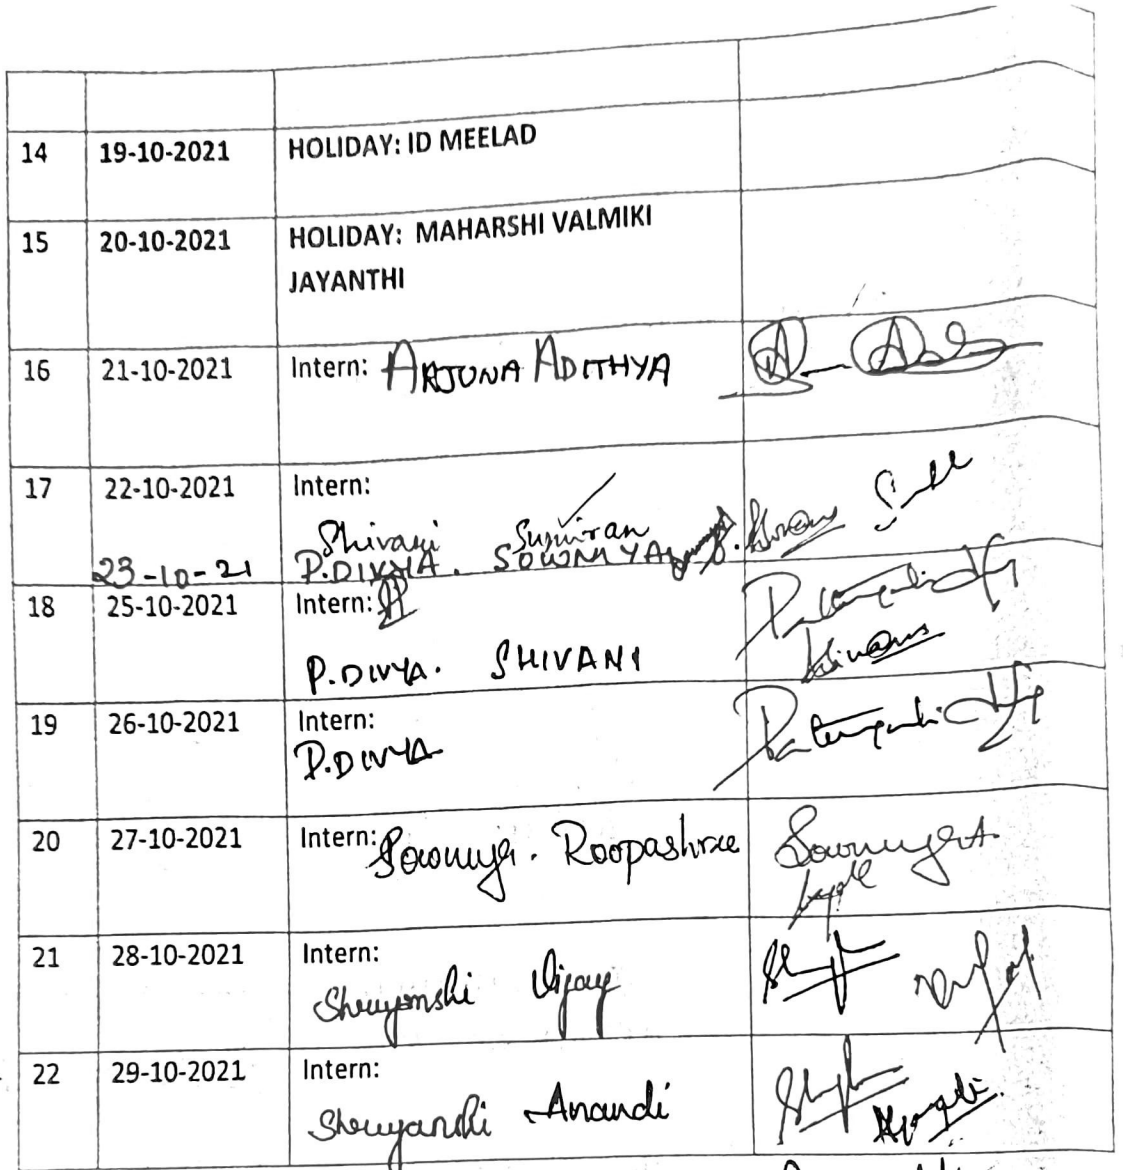 14 19-10-2021 HOLIDAY: ID MEELAD
15 20-10-2021 HOLIDAY: MAHARSHI VALMIKI
JAYANTHI
16 21-10-2021 Intern: ARJUNA ADITHYA
17 22-10-2021 Intern:
Shivani Sumiran
23-10-21 P.DIVYA. SOWMYA
18 25-10-2021 Intern:
P.DIVYA. SHIVANI
19 26-10-2021 Intern:
P.DIVYA
20 27-10-2021 Intern: Sowmya. Roopashree
Sowmya
21 28-10-2021 Intern:
Shreyanshi Vijay
22 29-10-2021 Intern:
Shreyanshi Anandi